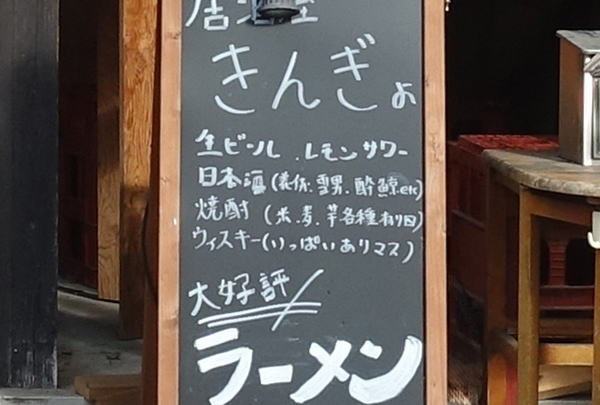 居酒屋
きんぎょ
生ビール.レモンサワー
日本酒(義侠.雪男.酔鯨etc)
焼酎(米.麦.芋各種有り□)
ウィスキー(いっぱいありマス)
大好評
ラーメン